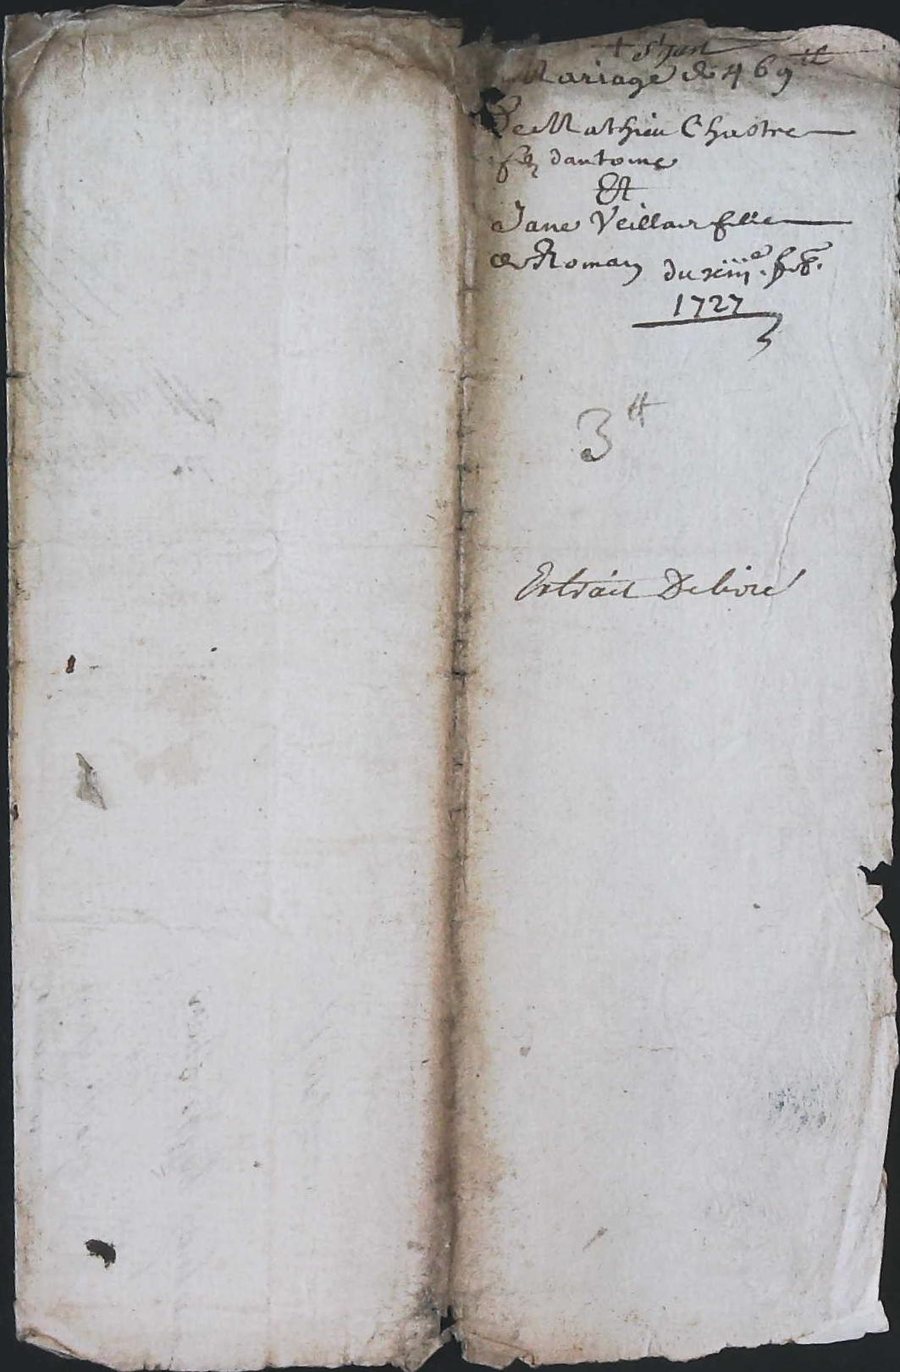 + St Just
Mariage de 469 ll
De Mathieu Chastre
fils dantoine
Et
Jane Veillair fille
de Roman du xiiie. feb.
1727
3 ll
Extrait Delivré